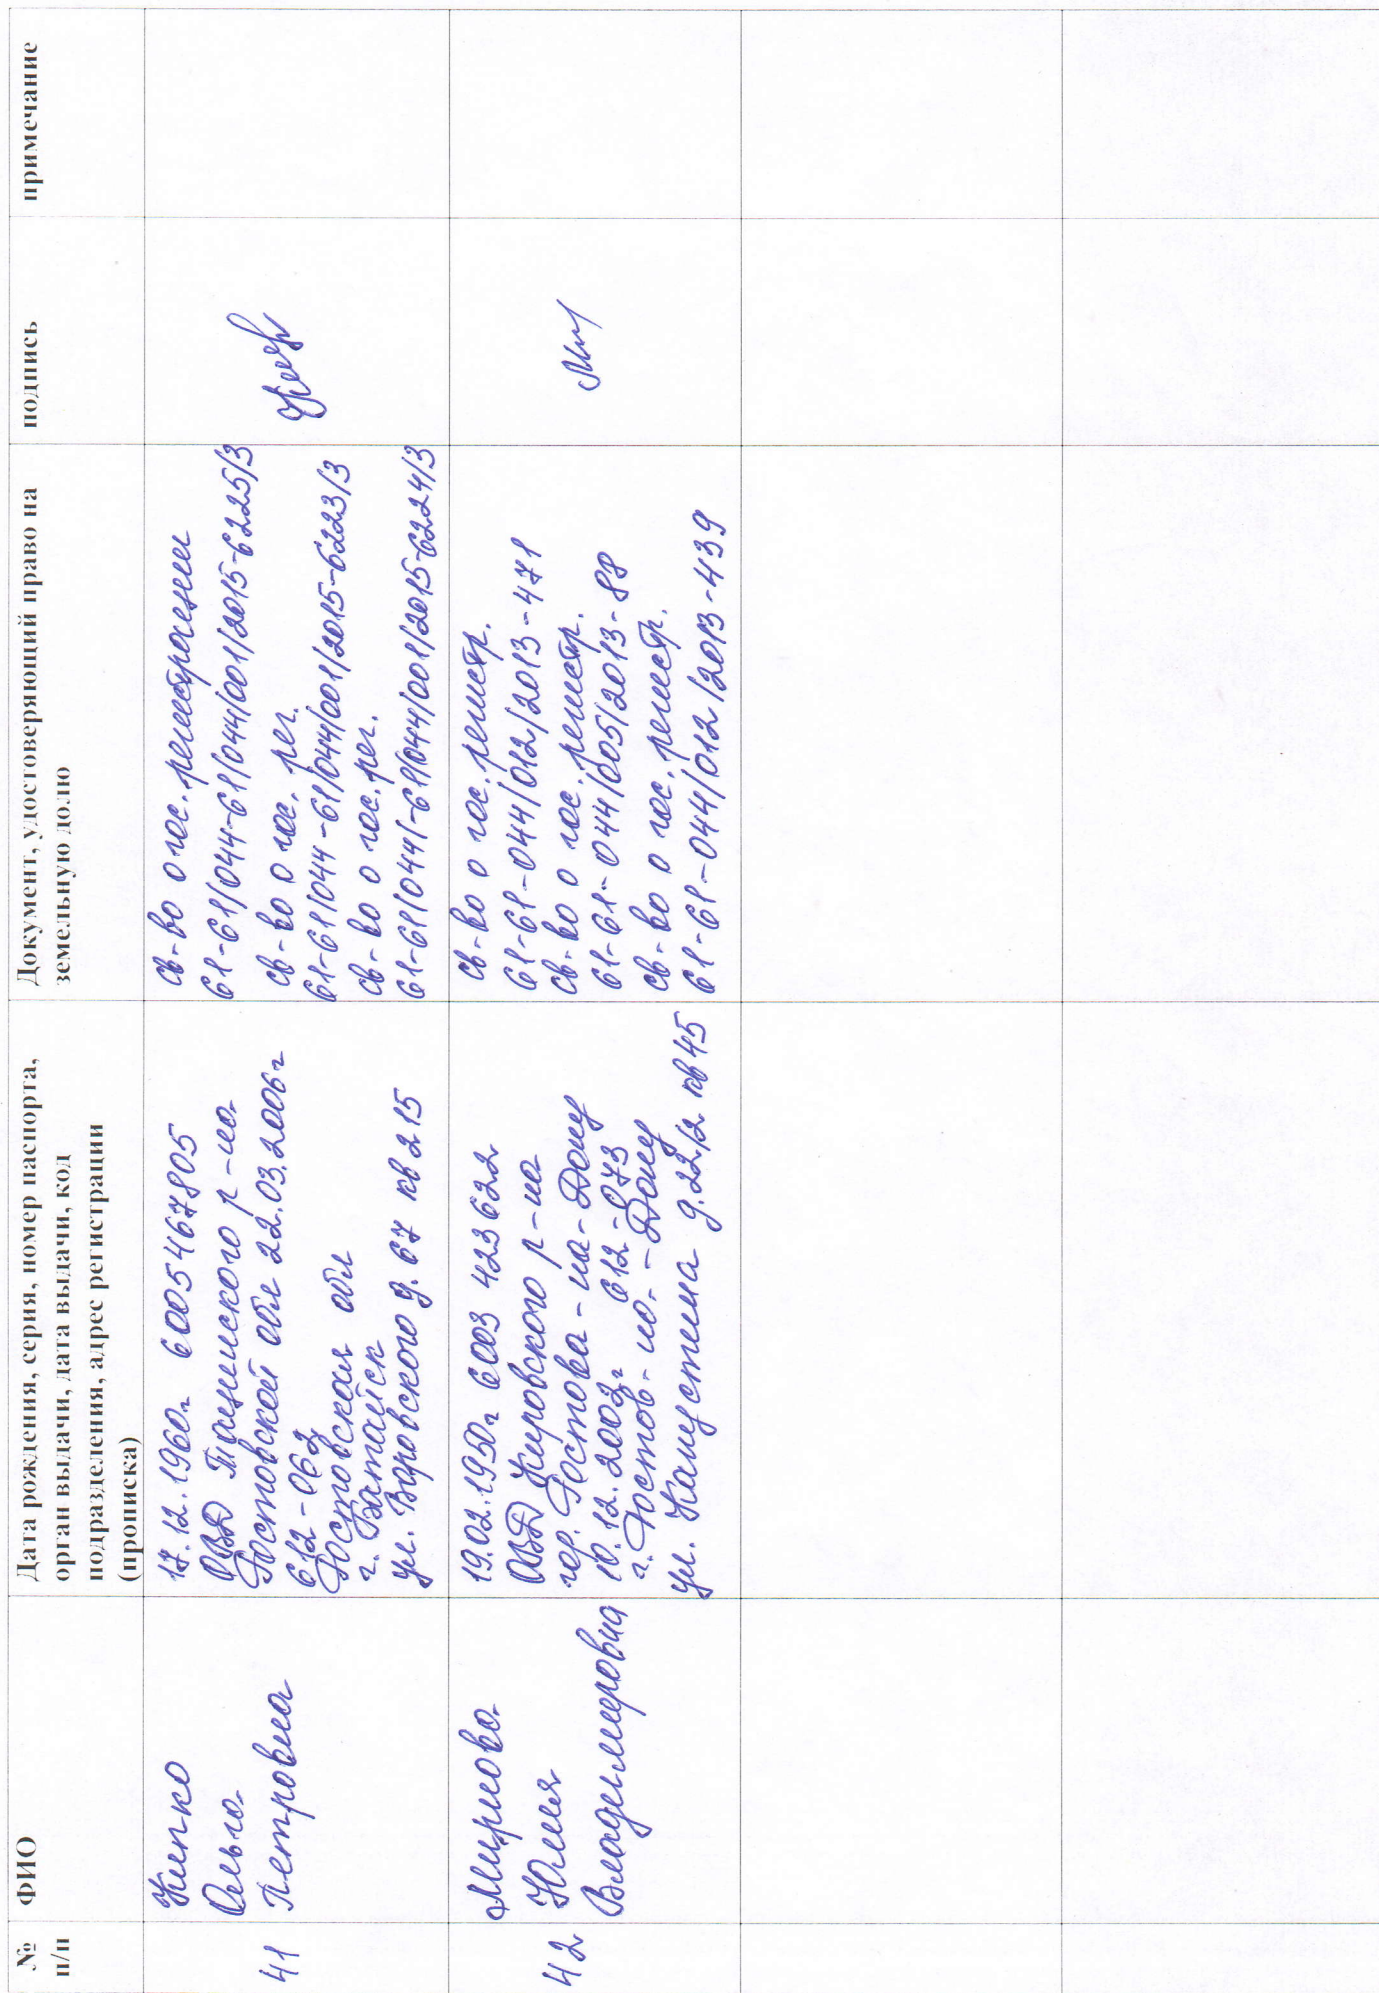 №
п/п
ФИО
Дата рождения, серия, номер паспорта,
орган выдачи, дата выдачи, код
подразделения, адрес регистрации
(прописка)
Документ, удостоверяющий право на
земельную долю
подпись
примечание
41
Кипко
Ольга
Петровна
17.12.1960г 6005467805
ОВД Тацинского р-на
Ростовской обл 22.03.2006г
612-063
Ростовская обл
г. Батайск
ул. Воровского д. 67 кв 215
св-во о гос. регистрации
61-61/044-61/044/001/2015-6225/3
св-во о гос. рег.
61-61/044-61/044/001/2015-6223/3
св-во о гос. рег.
61-61/044/-61/044/001/2015-6224/3
42
Миронова
Юлия
Владимировна
19.02.1950г 6003 423622
ОВД Кировского р-на
гор. Ростова-на-Дону
10.12.2003г 612-073
г. Ростов-на-Дону
ул. Капустина д.22/2 кв 45
св-во о гос. регистр.
61-61-044/012/2013-471
св-во о гос. регистр.
61-61-044/005/2013-88
св-во о гос. регистр.
61-61-044/012/2013-439